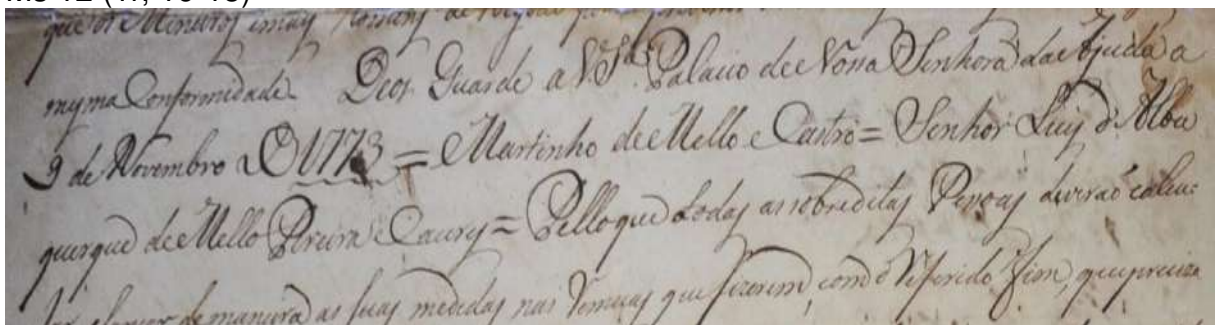 que os Mineiros
myma Conformidade. Deos Guarde a VSª. Palacio de Nossa Senhora da Ajuda a
9 de Novembro D 1773 = Martinho de Mello e Castro = Senhor Luiz d'Albu
querque de Mello Pereira Caceres = Pello que todas as sobreditas Pessoas deverão calcu:
de maneira as suas medidas nas Remeças que fizerem, com o referido fim, que preciza